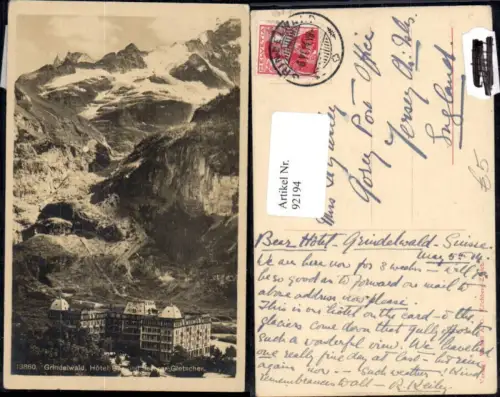 13860. Grindelwald, Hôtel
Gletscher.
HELVETIA
Artikel Nr.
92194
Post Office
Jersey Ch. Isles
England
£5
Bear Hotel - Grindelwald - Suisse.
May 5th
We are here now for 3 weeks - will you
be so good as to forward on mail to
above address now please.
This is our hotel on the card - & the
glaciers come down that gully opposite
such a wonderful view. We have had
one really fine day at last - but rain
again now - Such weather! Kind
remembrances to all - R.